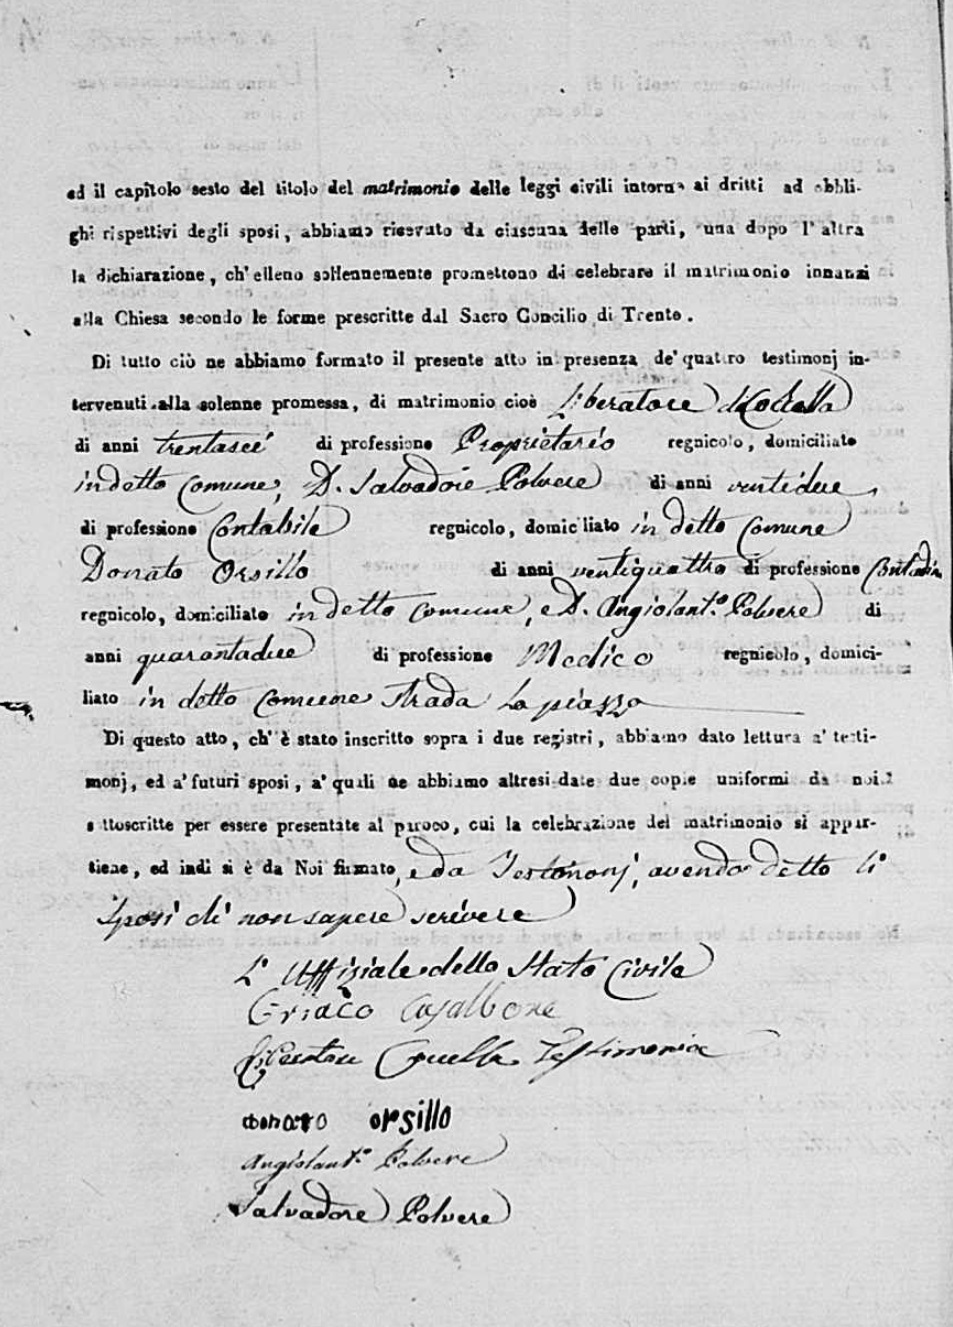 ed il capitolo sesto del titolo del matrimonio delle leggi civili intorno ai dritti ad obbli-
ghi rispettivi degli sposi, abbiamo ricevuto da ciascuna delle parti, una dopo l'altra
la dichiarazione, ch'elleno sollennemente promettono di celebrare il matrimonio innanzi
alla Chiesa secondo le forme prescritte dal Sacro Concilio di Trento.
Di tutto ciò ne abbiamo formato il presente atto in presenza de' quattro testimonj in-
tervenuti alla solenne promessa, di matrimonio cioè Liberatore
di anni trentasei di professione Proprietario regnicolo, domiciliato
in detto Comune, D. Salvadore Polvere di anni ventidue
di professione Contabile regnicolo, domiciliato in detto Comune
Donato Orsillo di anni ventiquattro di professione Contadin
regnicolo, domiciliato in detto Comune, e D. Angiolant.º Polvere di
anni quarantadue di professione Medico regnicolo, domici-
liato in detto Comune strada La piazza
Di questo atto, ch'è stato inscritto sopra i due registri, abbiamo dato lettura a' testi-
monj, ed a' futuri sposi, a' quali ne abbiamo altresi date due copie uniformi da noi
sottoscritte per essere presentate al paroco, cui la celebrazione del matrimonio si appar-
tiene, ed indi si è da Noi firmato, e da Testimonj, avendo detto li
Sposi di non sapere scrivere
L'Uffiziale dello Stato Civile
Casalbone
Testimonio
donato orsillo
Angiolant.º Polvere
Salvadore Polvere